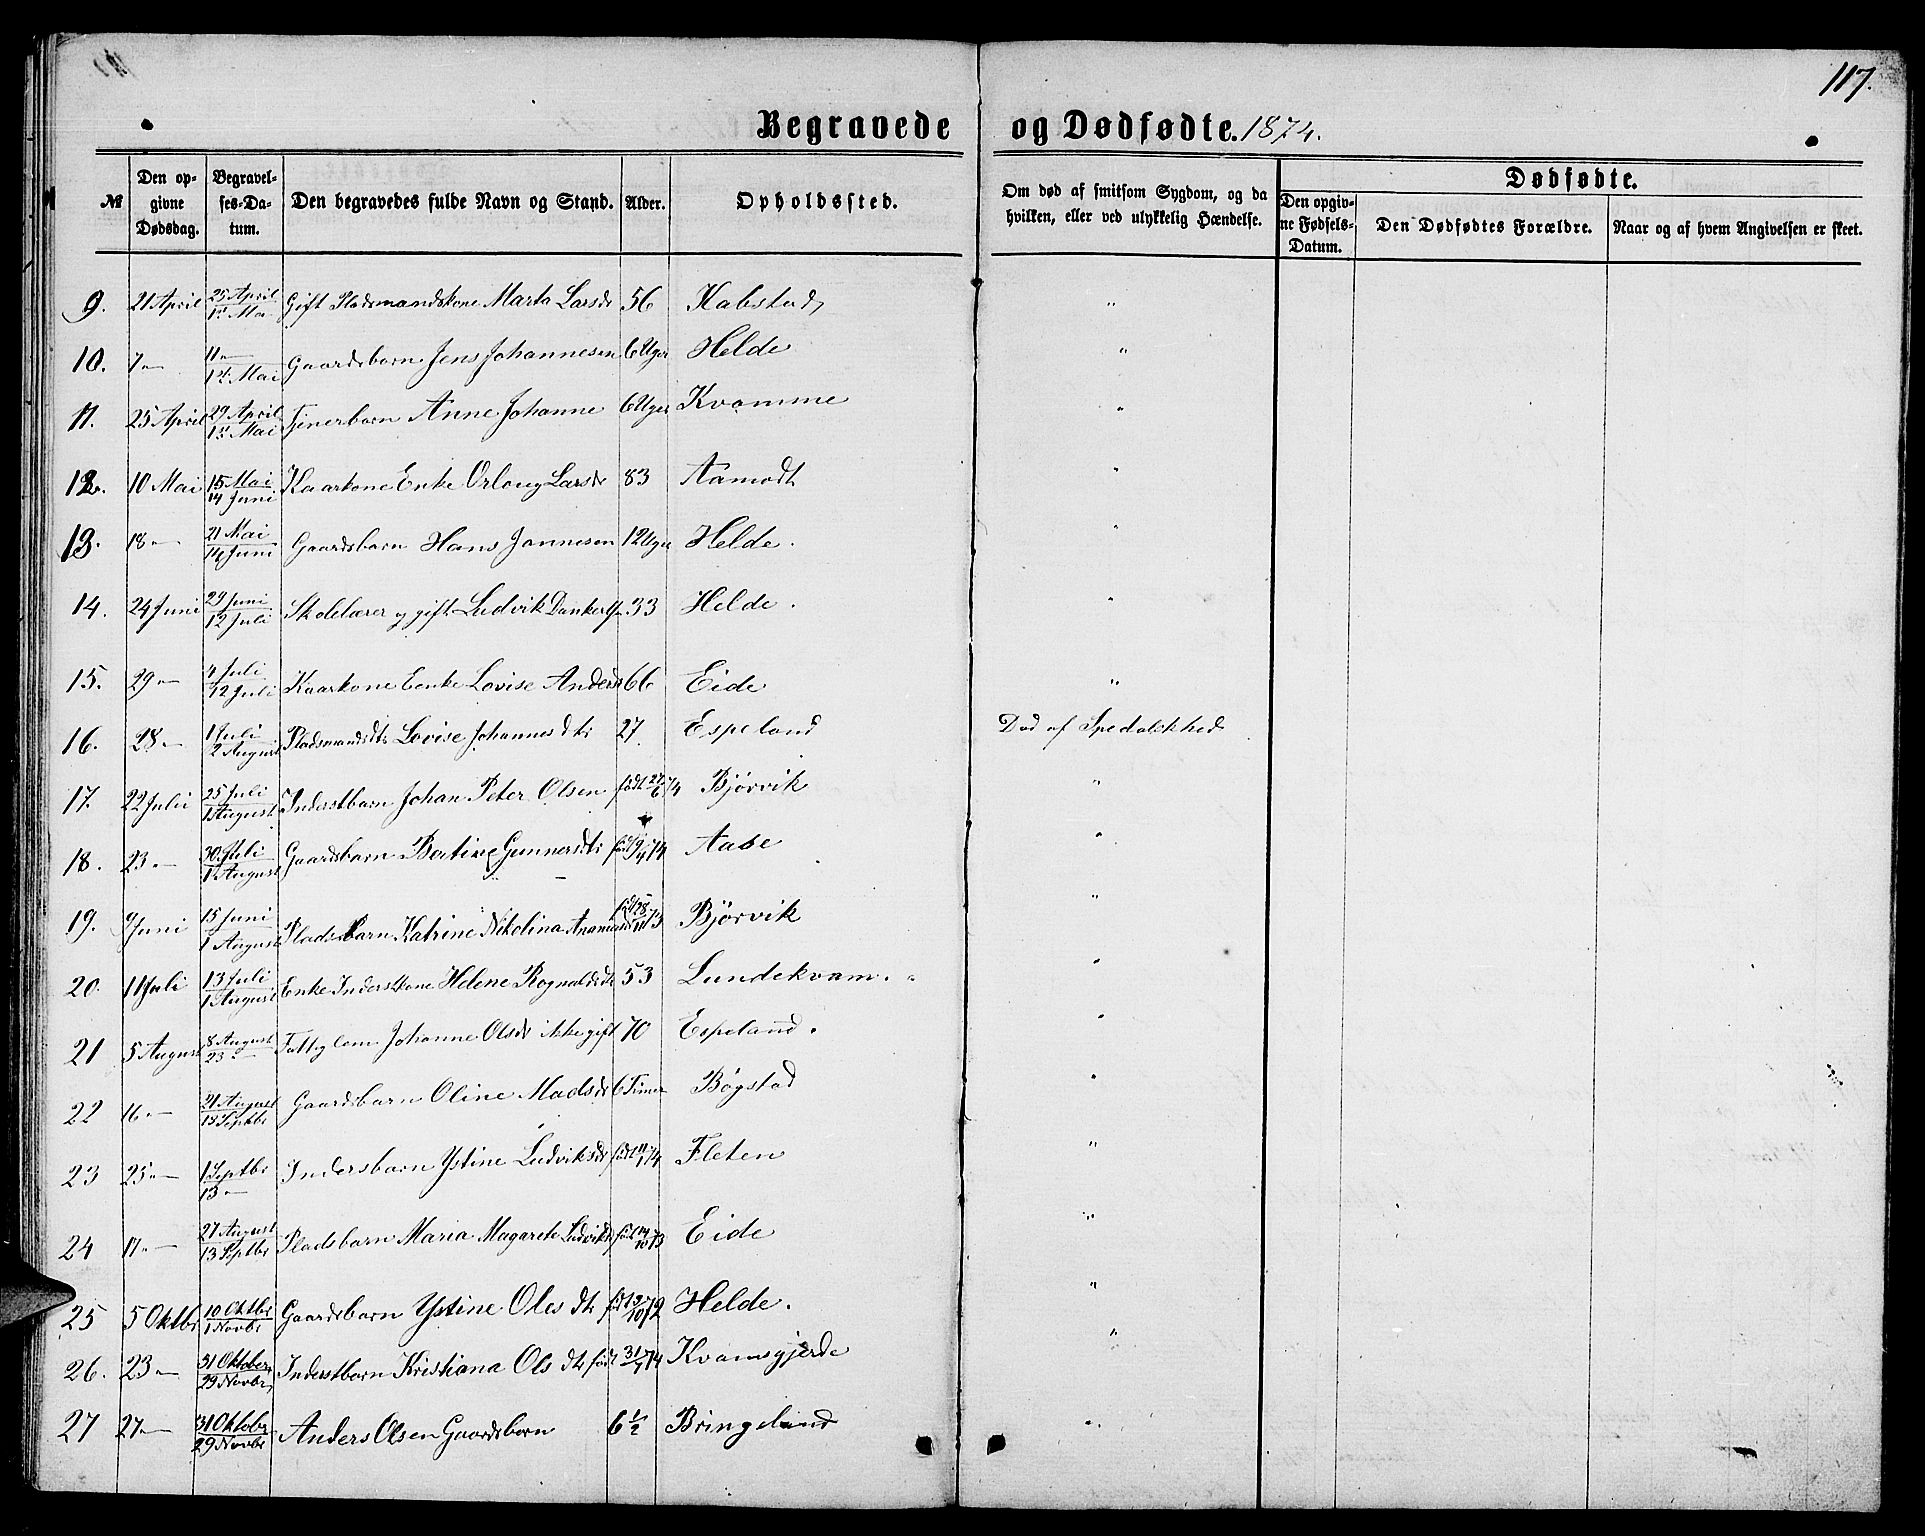 117.
Begravede og Dødfødte. 1874.
Dødfødte.
№ Den opgivne Dødsdag. Begravelses-Datum. Den begravedes fulde Navn og Stand. Alder. Opholdssted. Om død af smitsom Sygdom, og da hvilken, eller ved ulykkelig Hændelse. Den opgivne Fødsels-Datum. Den Dødfødtes Forældre. Naar og af hvem Angivelsen er skeet.
9. 21 April 25 April / 1st Mai Gift Pladsmandskone Marta Larsdr 56 Kabstad "
10. 7 " 11 " / 1st Mai Gaardsbarn Jens Johannesen 6 Uger Helde "
11. 25 April 29 April / 1st Mai Tjenerbarn Anne Johanne 6 Uger Kvamme "
12. 10 Mai 15 Mai / 14 Juni Kaarkone Enke Orloug Larsdr 83 Aamodt "
13. 18 " 21 Mai / 14 Juni Gaardsbarn Hans Jannesen 12 Uger Helde. "
14. 24 Juni 29 Juni / 12 Juli Skolelærer og gift Ludvik Dankertsn 33 Helde. "
15. 29 " 4 Juli / 12 Juli Kaarkone Eenke Lovise Andersd 66 Eide "
16. 28 " 1 Juli / 2 August Pladsmandsdtr Lovise Johannesdtr 27. Espeland Død af Spedalskhed
17. 22 Juli 25 Juli / 1 August Inderstbarn Johan Peter Olsen født 27/6 74 Bjørvik "
18. 23 " 30 Juli / 1 August Gaardsbarn Bertine Gunnersdtr født 9/4 74 Aase "
19. 9 Juni 15 Juni / 1 August Pladsbarn Katrine Nikolina født 28/11 73 Bjørvik "
20. 11 Juli 13 Juli / 1 August Enke Inderstkone Helene Rognaldsdtr 53 Lundekvam. "
21 5 August 8 August / 23 " Fattiglem Johanne Olsdr ikke gift 70 Espeland. "
22 16 " 21 August / 13 Septbr Gaardsbarn Oline Madsdr 6 Timer Bøgstad "
23 25 " 1 Septbr / 13 " Indersbarn Ystine Ludviksdr født 11/1 74 Fleten "
24 17 " 27 August / 13 Septbr Pladsbarn Maria Magarete Ludvikdr født 14/10 73 Eide "
25 5 Oktbr 10 Oktbr / 1 Novbr Gaardsbarn Ystine Oles dtr født 19/10 72 Helde. "
26. 23 " 31 Oktober / 29 Novbr Inderstbarn Kristiana Ols dtr født 31/7 74 Kvamsgjerde "
27 27 " 31 Oktobr / 29 Novbr Anders Olsen Gaardsbarn 6 1/2 Bringeland "